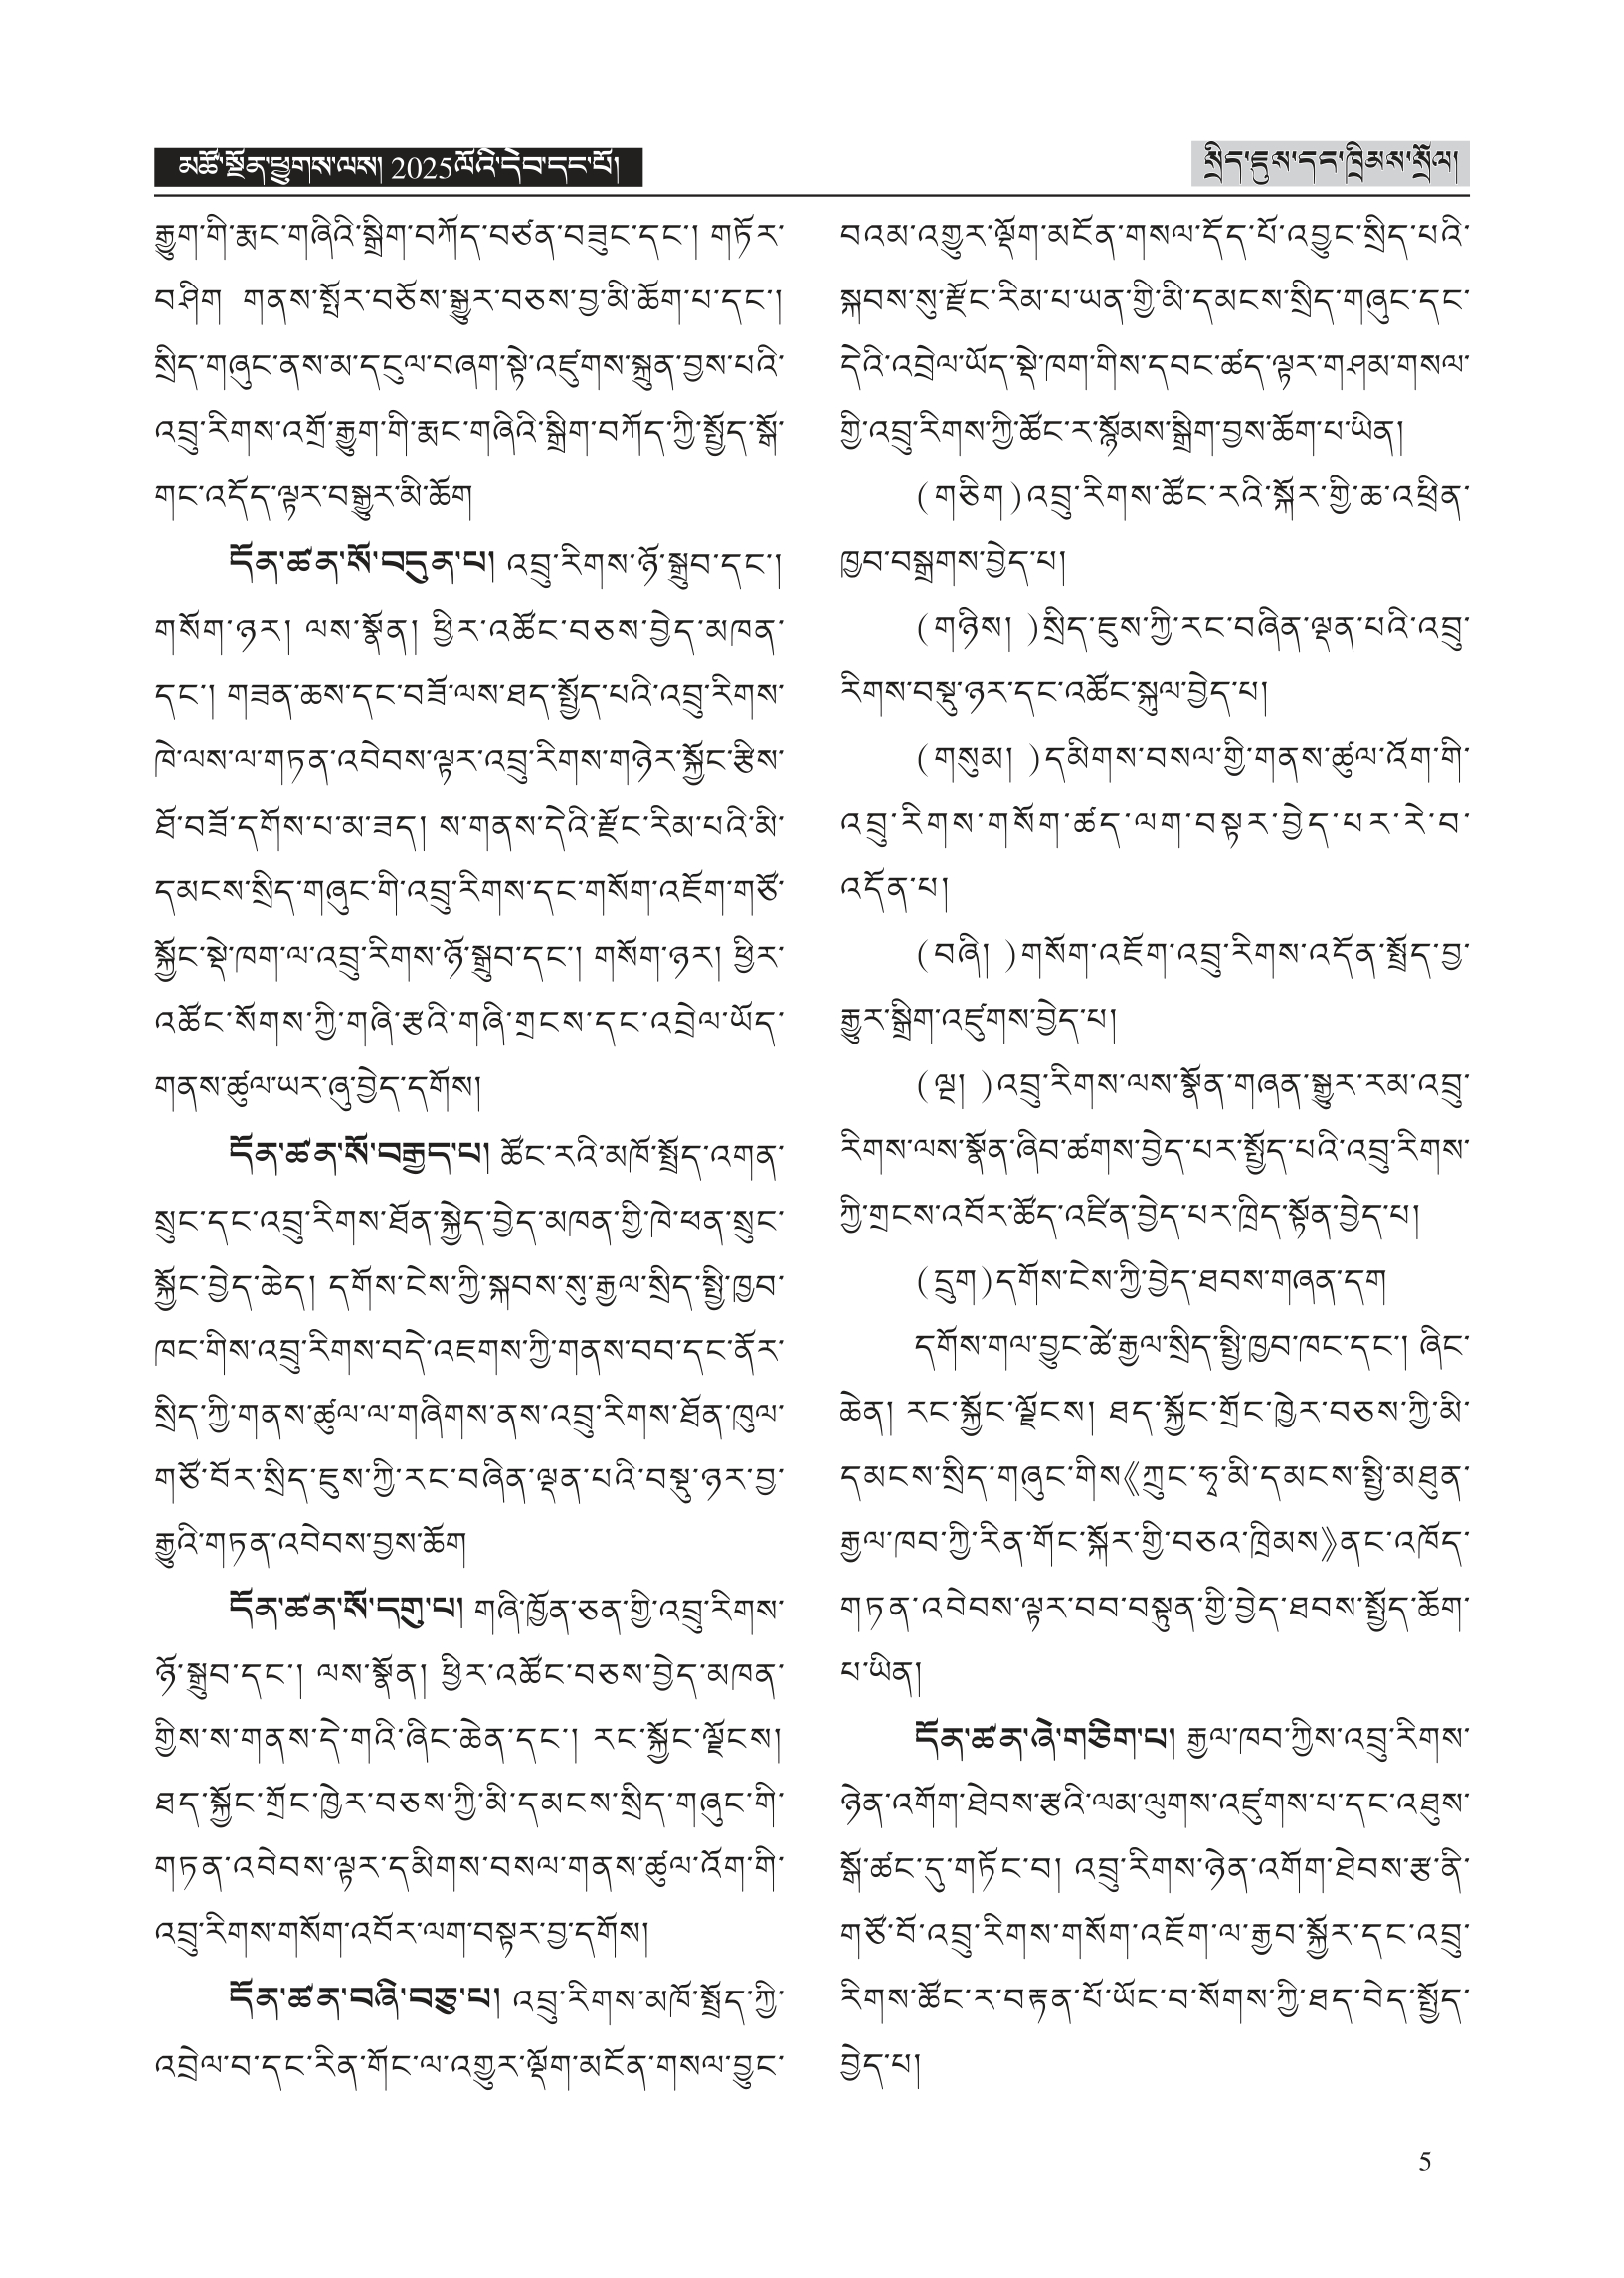 མཚོ་སྔོན་ཕྱུགས་ལས། 2025ལོའི་དེབ་དང་པོ།
སྲིད་ཇུས་དད་ཁྲིམས་སྲོལ།
རྒྱུག་གི་རྨང་གཞིའི་སྒྲིག་བཀོད་བཙན་བཟུང་དང་། གཏོར་
བཤིག གནས་སྤོར་བཅོས་སྒྱུར་བཅས་བྱ་མི་ཆོག་པ་དང་།
སྲིད་གཞུང་ནས་མ་དངུལ་བཞག་སྟེ་འཛུགས་སྐྲུན་བྱས་པའི་
འབྲུ་རིགས་འགྲོ་རྒྱུག་གི་རྨང་གཞིའི་སྒྲིག་བཀོད་ཀྱི་སྤྱོད་སྒོ་
གང་འདོད་ལྟར་བསྒྱུར་མི་ཆོག
དོན་ཚན་སོ་བདུན་པ། འབྲུ་རིགས་ཉོ་སྒྲུབ་དང་།
གསོག་ཉར། ལས་སྣོན། ཕྱིར་འཚོང་བཅས་བྱེད་མཁན་
དང་། གཟན་ཆས་དང་བཟོ་ལས་ཐད་སྤྱོད་པའི་འབྲུ་རིགས་
ཁེ་ལས་ལ་གཏན་འབེབས་ལྟར་འབྲུ་རིགས་གཉེར་སྐྱོང་རྩིས་
ཐོ་བཟོ་དགོས་པ་མ་ཟད། ས་གནས་དེའི་རྫོང་རིམ་པའི་མི་
དམངས་སྲིད་གཞུང་གི་འབྲུ་རིགས་དང་གསོག་འཇོག་གཙོ་
སྐྱོང་སྡེ་ཁག་ལ་འབྲུ་རིགས་ཉོ་སྒྲུབ་དང་། གསོག་ཉར། ཕྱིར་
འཚོང་སོགས་ཀྱི་གཞི་རྩའི་གཞི་གྲངས་དང་འབྲེལ་ཡོད་
གནས་ཚུལ་ཡར་ཞུ་བྱེད་དགོས།
དོན་ཚན་སོ་བརྒྱད་པ། ཚོང་རའི་མཁོ་སྤྲོད་འགན་
སྲུང་དང་འབྲུ་རིགས་ཐོན་སྐྱེད་བྱེད་མཁན་གྱི་ཁེ་ཕན་སྲུང་
སྐྱོང་བྱེད་ཆེད། དགོས་ངེས་ཀྱི་སྐབས་སུ་རྒྱལ་སྲིད་སྤྱི་ཁྱབ་
ཁང་གིས་འབྲུ་རིགས་བདེ་འཇགས་ཀྱི་གནས་བབ་དང་ནོར་
སྲིད་ཀྱི་གནས་ཚུལ་ལ་གཞིགས་ནས་འབྲུ་རིགས་ཐོན་ཁུལ་
གཙོ་བོར་སྲིད་ཇུས་ཀྱི་རང་བཞིན་ལྡན་པའི་བསྡུ་ཉར་བྱ་
རྒྱུའི་གཏན་འབེབས་བྱས་ཆོག
དོན་ཚན་སོ་དགུ་པ། གཞི་ཁྱོན་ཅན་གྱི་འབྲུ་རིགས་
ཉོ་སྒྲུབ་དང་། ལས་སྣོན། ཕྱིར་འཚོང་བཅས་བྱེད་མཁན་
གྱིས་ས་གནས་དེ་གའི་ཞིང་ཆེན་དང་། རང་སྐྱོང་ལྗོངས།
ཐད་སྐྱོང་གྲོང་ཁྱེར་བཅས་ཀྱི་མི་དམངས་སྲིད་གཞུང་གི་
གཏན་འབེབས་ལྟར་དམིགས་བསལ་གནས་ཚུལ་འོག་གི་
འབྲུ་རིགས་གསོག་འབོར་ལག་བསྟར་བྱ་དགོས།
དོན་ཚན་བཞི་བཅུ་པ། འབྲུ་རིགས་མཁོ་སྤྲོད་ཀྱི་
འབྲེལ་བ་དང་རིན་གོང་ལ་འགྱུར་ལྡོག་མངོན་གསལ་བྱུང་
བའམ་འགྱུར་ལྡོག་མངོན་གསལ་དོད་པོ་འབྱུང་སྲིད་པའི་
སྐབས་སུ་རྫོང་རིམ་པ་ཡན་གྱི་མི་དམངས་སྲིད་གཞུང་དང་
དེའི་འབྲེལ་ཡོད་སྡེ་ཁག་གིས་དབང་ཚད་ལྟར་གཤམ་གསལ་
གྱི་འབྲུ་རིགས་ཀྱི་ཚོང་ར་སྙོམས་སྒྲིག་བྱས་ཆོག་པ་ཡིན།
(གཅིག)འབྲུ་རིགས་ཚོང་རའི་སྐོར་གྱི་ཆ་འཕྲིན་
ཁྱབ་བསྒྲགས་བྱེད་པ།
(གཉིས། )སྲིད་ཇུས་ཀྱི་རང་བཞིན་ལྡན་པའི་འབྲུ་
རིགས་བསྡུ་ཉར་དང་འཚོང་སྐུལ་བྱེད་པ།
(གསུམ། )དམིགས་བསལ་གྱི་གནས་ཚུལ་འོག་གི་
འབྲུ་རིགས་གསོག་ཚད་ལག་བསྟར་བྱེད་པར་རེ་བ་
འདོན་པ།
(བཞི། )གསོག་འཇོག་འབྲུ་རིགས་འདོན་སྤྲོད་བྱ་
རྒྱུར་སྒྲིག་འཛུགས་བྱེད་པ།
(ལྔ། )འབྲུ་རིགས་ལས་སྣོན་གཞན་སྒྱུར་རམ་འབྲུ་
རིགས་ལས་སྣོན་ཞིབ་ཚགས་བྱེད་པར་སྤྱོད་པའི་འབྲུ་རིགས་
ཀྱི་གྲངས་འབོར་ཚོད་འཛིན་བྱེད་པར་ཁྲིད་སྟོན་བྱེད་པ།
(དྲུག)དགོས་ངེས་ཀྱི་བྱེད་ཐབས་གཞན་དག
དགོས་གལ་བྱུང་ཚེ་རྒྱལ་སྲིད་སྤྱི་ཁྱབ་ཁང་དང་། ཞིང་
ཆེན། རང་སྐྱོང་ལྗོངས། ཐད་སྐྱོང་གྲོང་ཁྱེར་བཅས་ཀྱི་མི་
དམངས་སྲིད་གཞུང་གིས《ཀྲུང་ཧྭ་མི་དམངས་སྤྱི་མཐུན་
རྒྱལ་ཁབ་ཀྱི་རིན་གོང་སྐོར་གྱི་བཅའ་ཁྲིམས》ནང་འཁོད་
གཏན་འབེབས་ལྟར་བབ་བསྟུན་གྱི་བྱེད་ཐབས་སྤྱོད་ཆོག་
པ་ཡིན།
དོན་ཚན་ཞེ་གཅིག་པ། རྒྱལ་ཁབ་ཀྱིས་འབྲུ་རིགས་
ཉེན་འགོག་ཐེབས་རྩའི་ལམ་ལུགས་འཛུགས་པ་དང་འཐུས་
སྒོ་ཚང་དུ་གཏོང་བ། འབྲུ་རིགས་ཉེན་འགོག་ཐེབས་རྩ་ནི་
གཙོ་བོ་འབྲུ་རིགས་གསོག་འཇོག་ལ་རྒྱབ་སྐྱོར་དང་འབྲུ་
རིགས་ཚོང་ར་བརྟན་པོ་ཡོང་བ་སོགས་ཀྱི་ཐད་བེད་སྤྱོད་
བྱེད་པ།
5